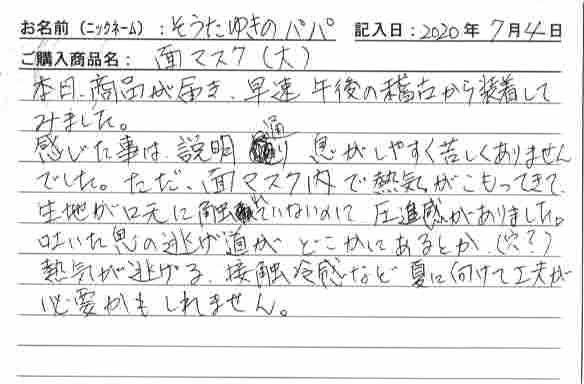 お名前（ニックネーム）：そうたゆきのパパ 記入日：2020年7月4日
ご購入商品名：面マスク（大）
本日、商品が届き、早速 午後の稽古から装着して
みました。
感じた事は、説明通り 息がしやすく苦しくありません
でした。ただ、面マスク内で熱気がこもってきて、
生地が口元に触れていないのに 圧迫感がありました。
吐いた息の逃げ道が どこかにあるとか、（穴？）
熱気が逃げる、接触冷感など 夏に向けて工夫が
必要かもしれません。